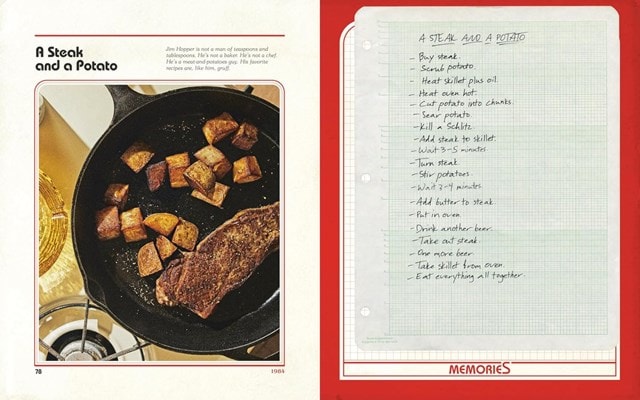 A Steak
and a Potato
Jim Hopper is not a man of teaspoons and
tablespoons. He's not a baker. He's not a chef.
He's a meat-and-potatoes guy. His favorite
recipes are, like him, gruff.
78
1984
A STEAK AND A POTATO
- Buy steak.
- Scrub potato.
- Heat skillet plus oil.
- Heat oven hot.
- Cut potato into chunks.
- Sear potato.
- Kill a Schlitz.
- Add steak to skillet.
- Wait 3-5 minutes.
- Turn steak.
- Stir potatoes.
- Wait 3-4 minutes.
- Add butter to steak.
- Put in oven.
- Drink another beer.
- Take out steak.
- One more beer.
- Take skillet from oven.
- Eat everything all together.
MEMORIES